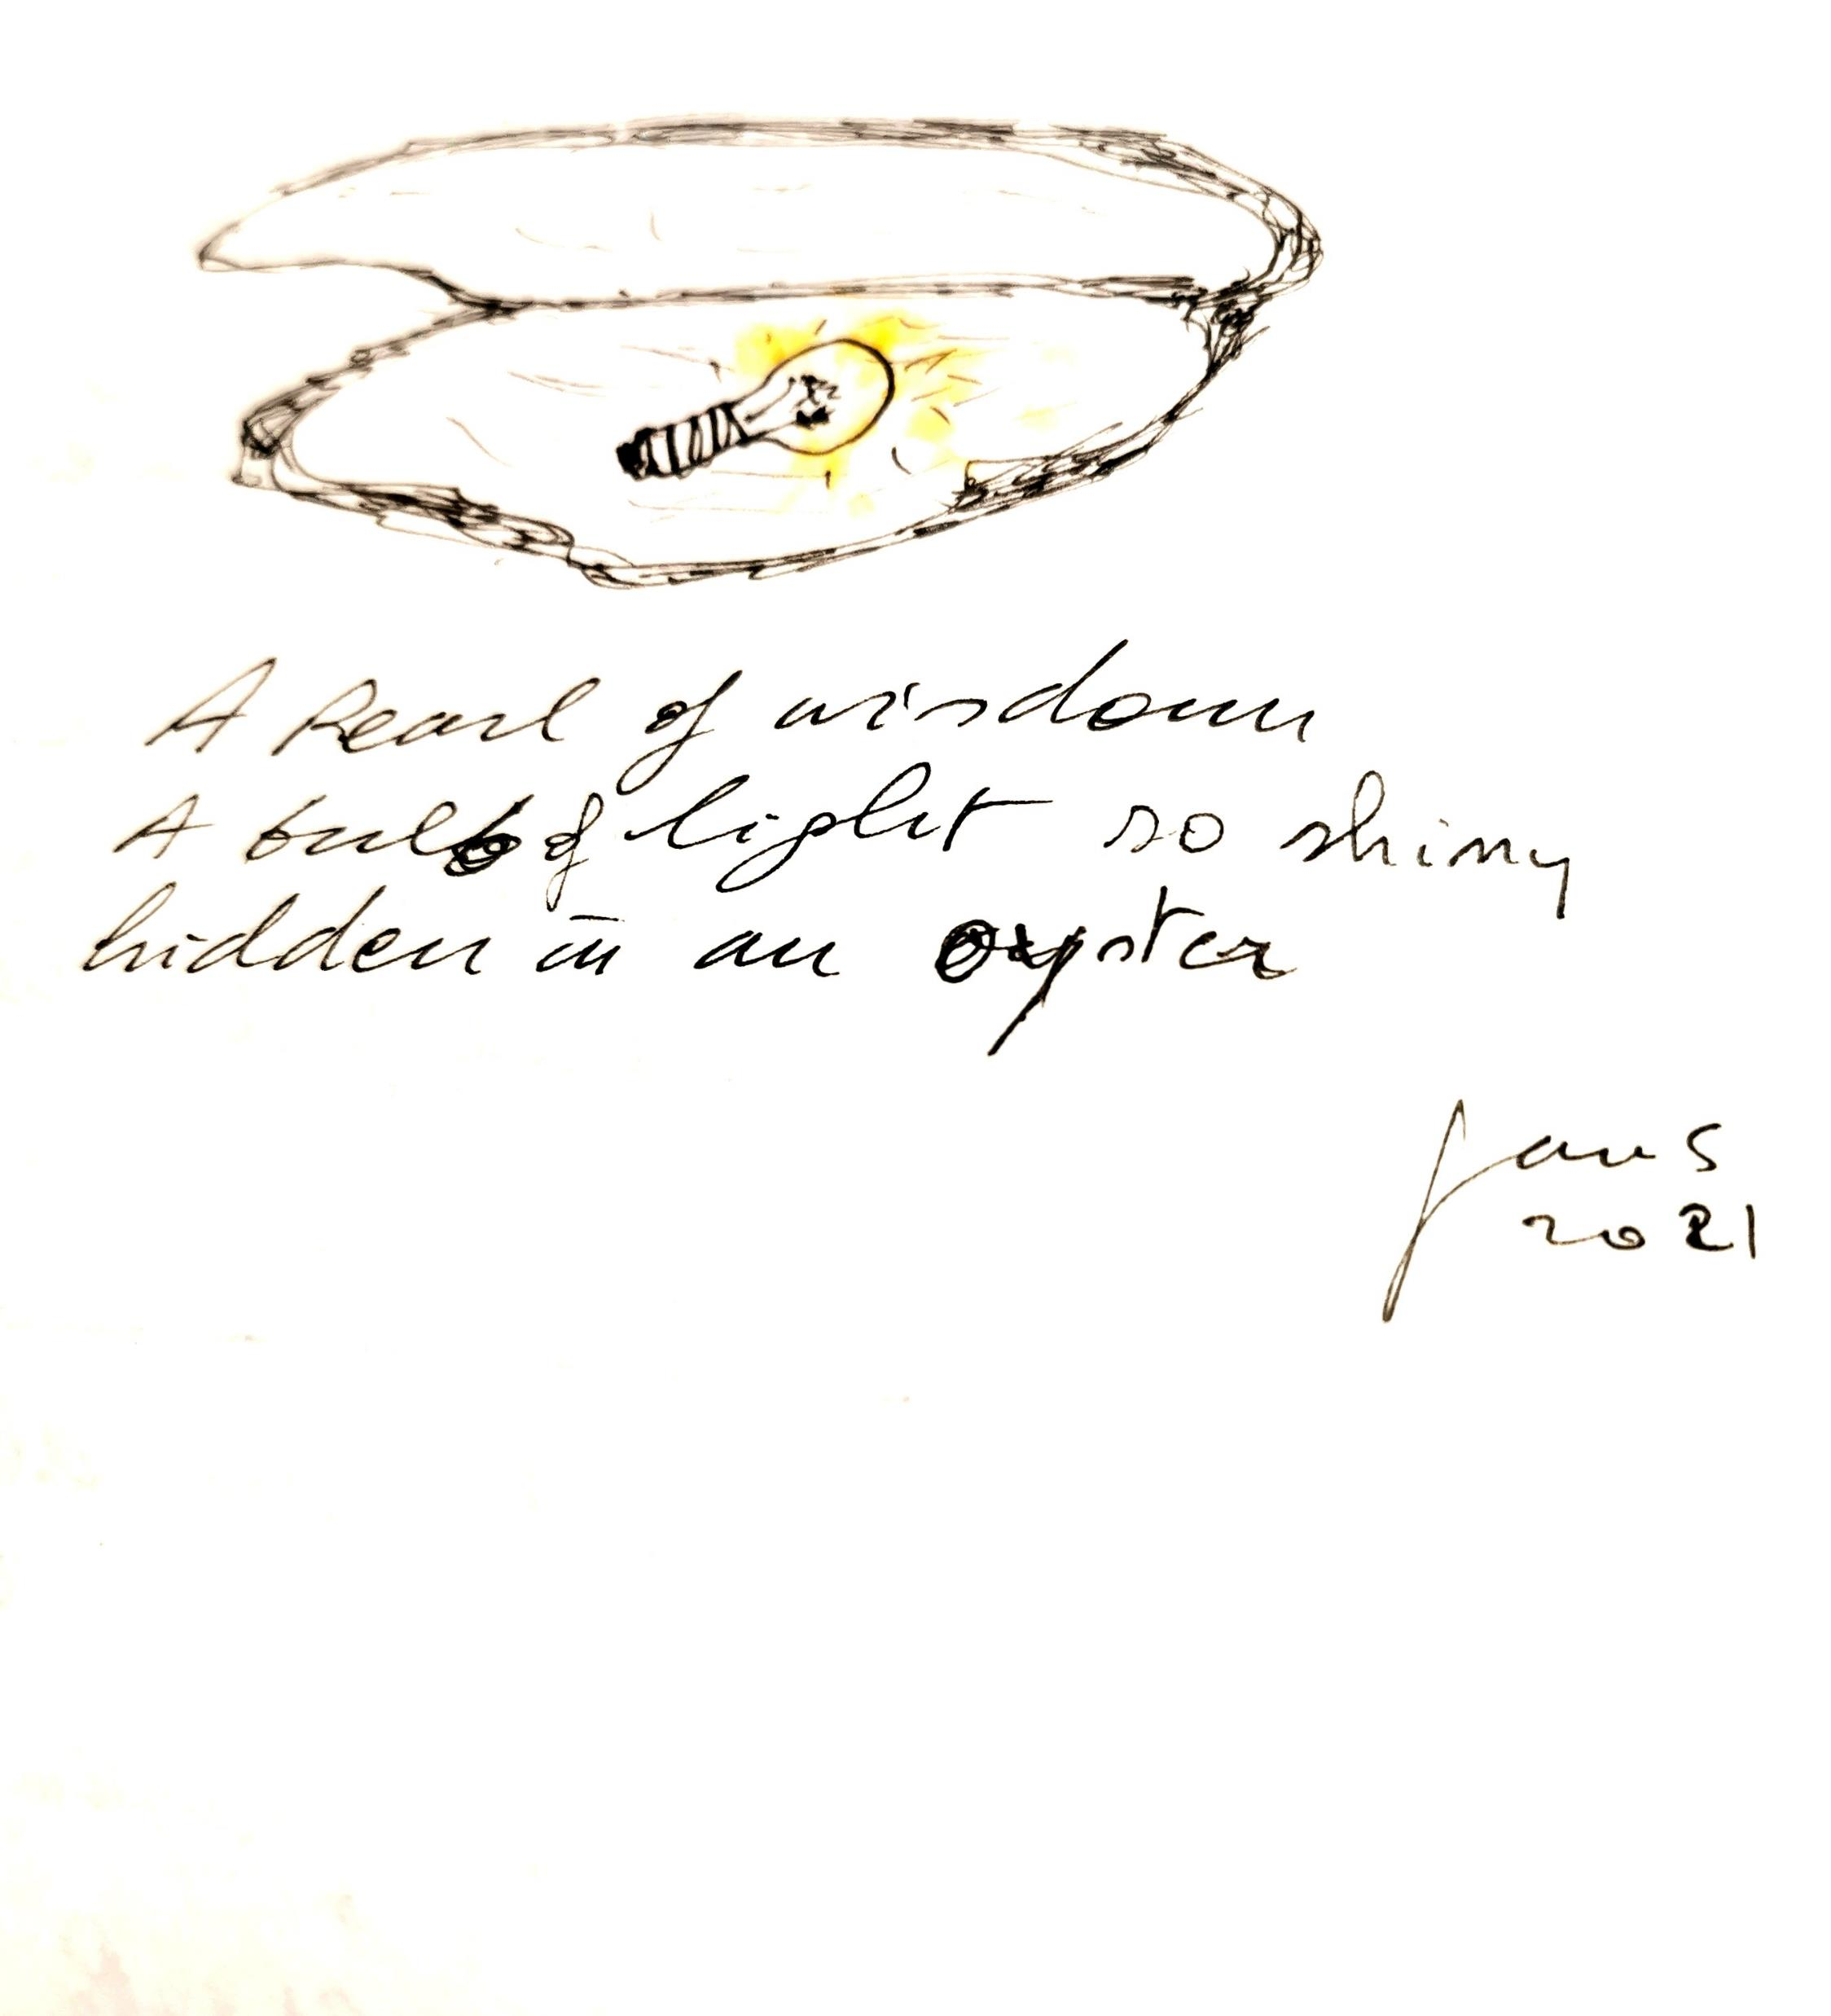 A Pearl of wisdom
A bulb of light so shiny
hidden in an oyster
2021